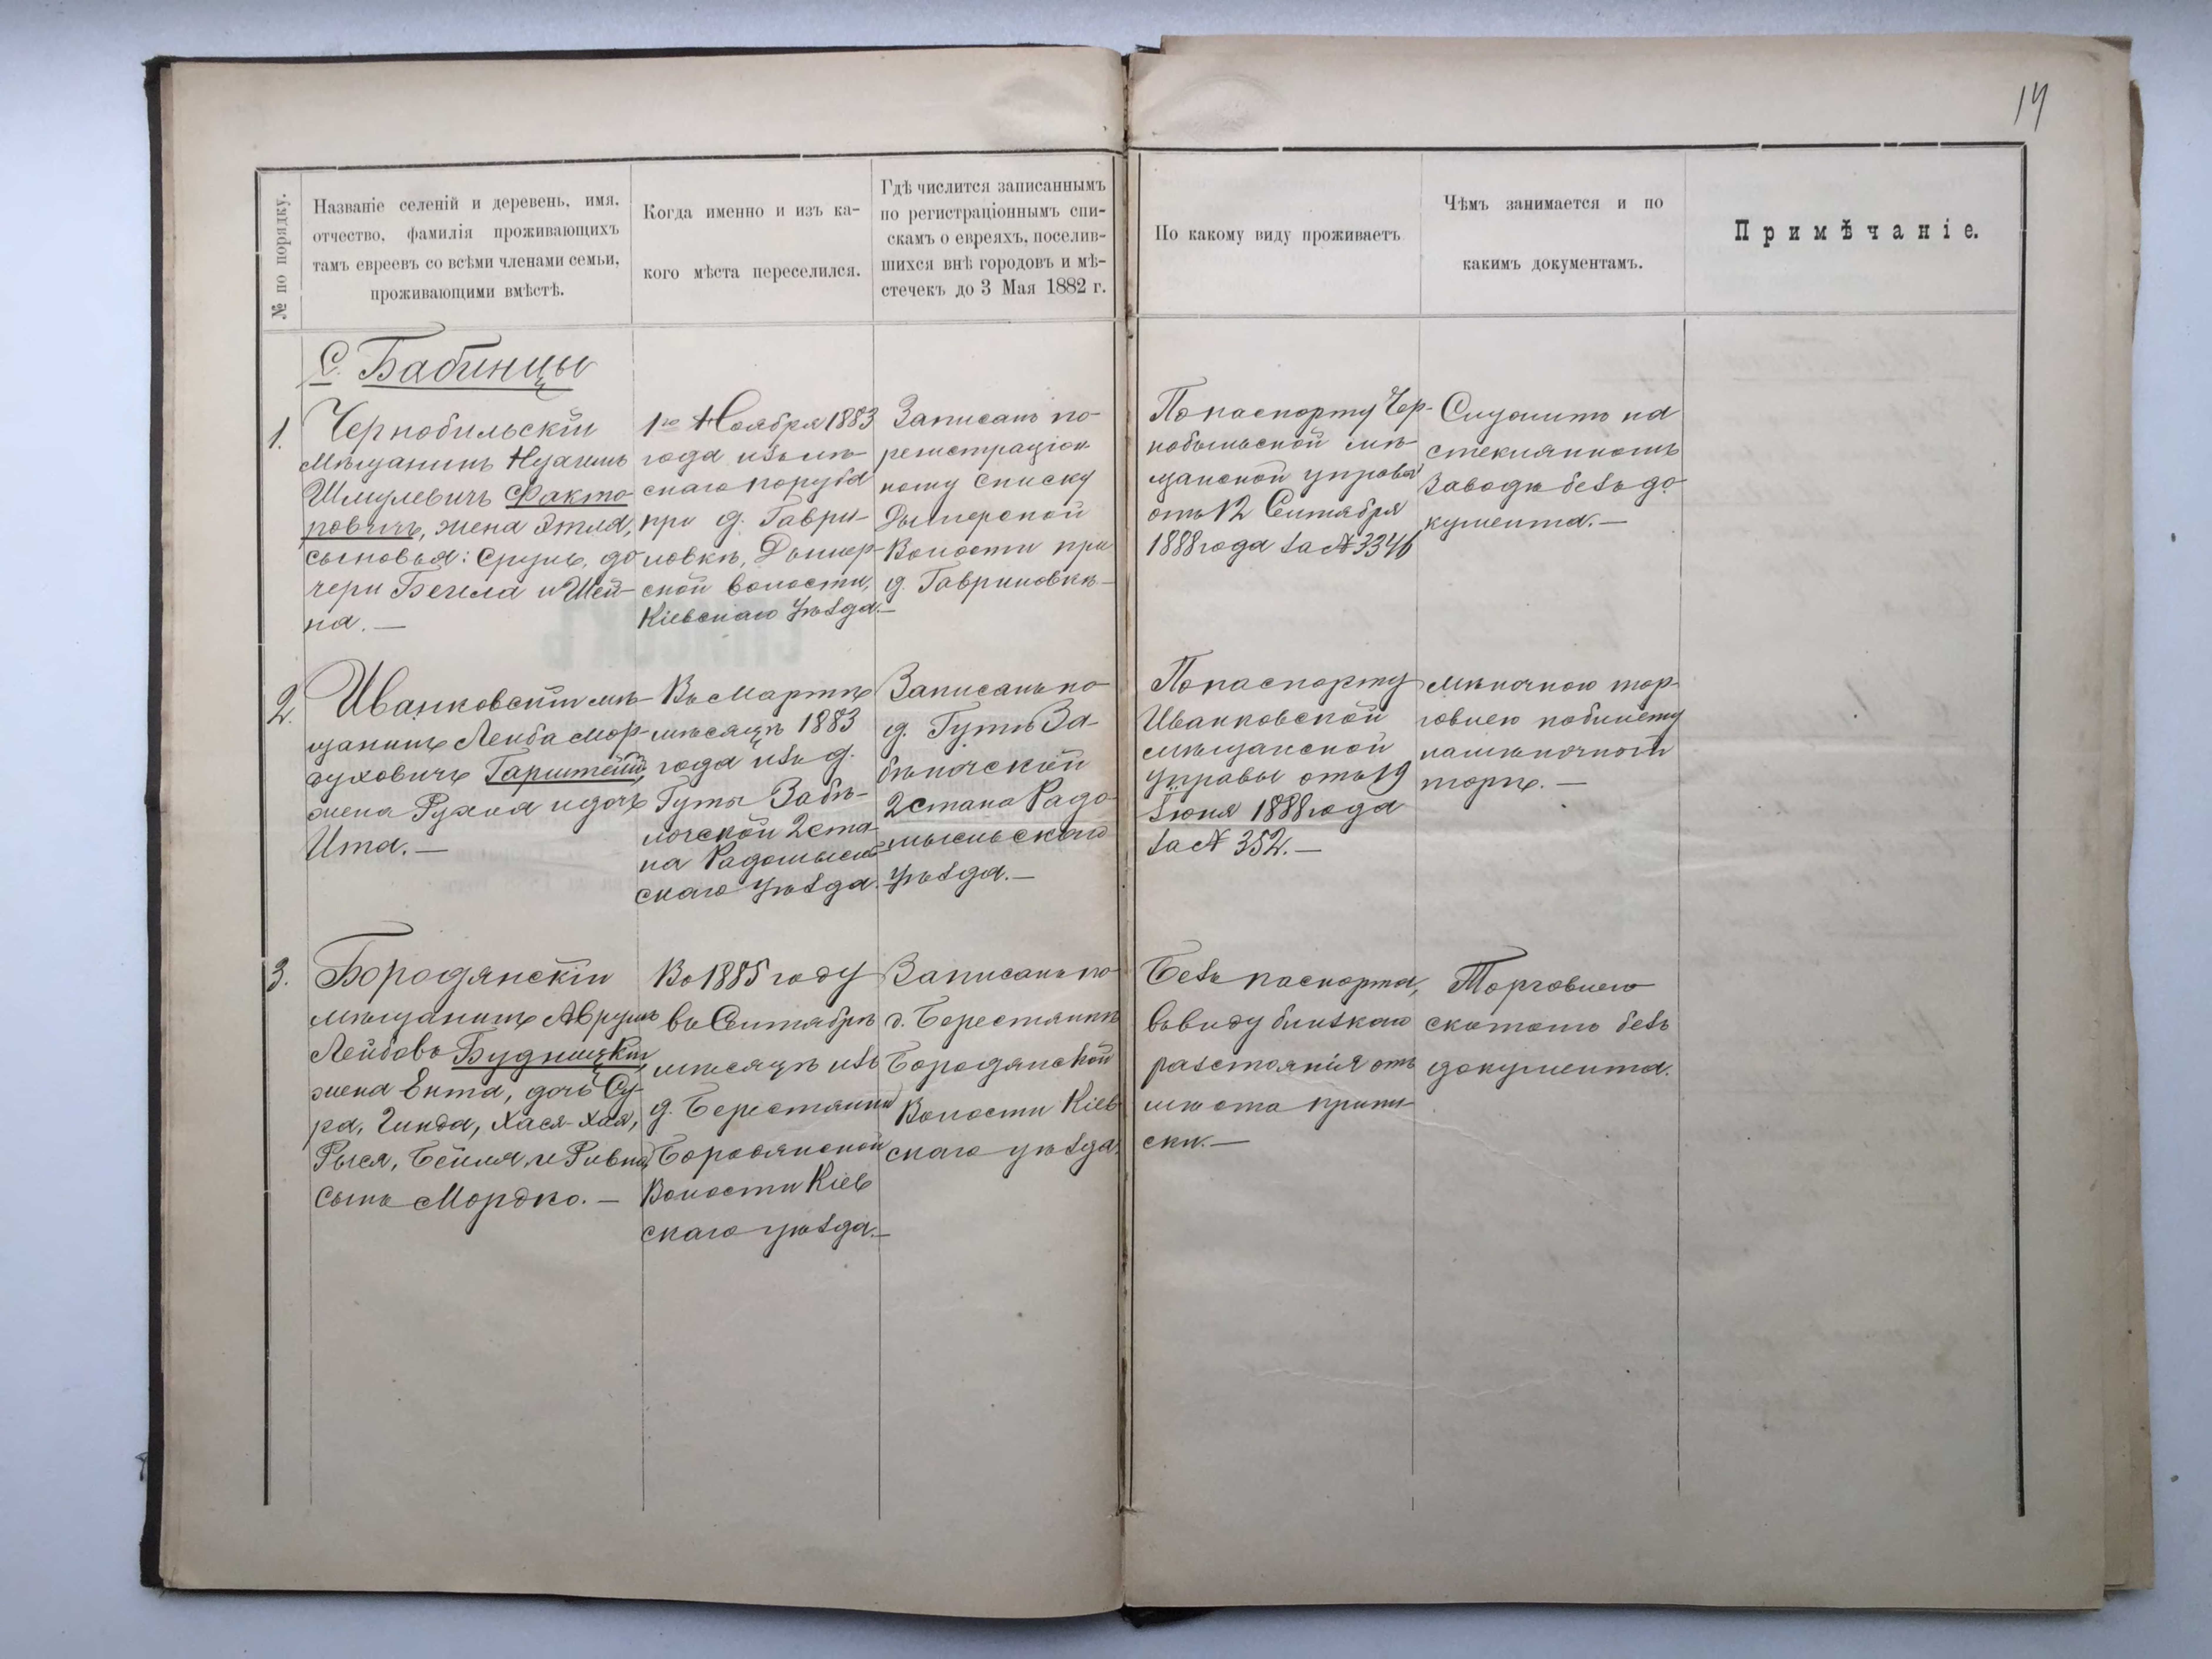 14
№ по порядку.
Названіе селеній и деревень, имя,
отчество, фамилія проживающихъ
тамъ евреевъ со всѣми членами семьи,
проживающими вмѣстѣ.
Когда именно и изъ ка-
кого мѣста переселился.
Гдѣ числится записаннымъ
по регистраціоннымъ спи-
скамъ о евреяхъ, поселив-
шихся внѣ городовъ и мѣ-
стечекъ до 3 Мая 1882 г.
По какому виду проживаетъ
Чѣмъ занимается и по
какимъ документамъ.
Примѣчаніе.
С. Бабинцы
1.
Чернобильскій
Мѣщанинъ
Шмулевичъ Факто-
ровичъ, жена Этля,
сыновья: Сруль, до
чери Бейла и Шей-
на. —
1го Ноября 1883
года изъ лѣ-
снаго поруба
при д. Гаври-
ловкѣ, Дымер-
ской волости,
Кіевскаго уѣзда. —
Записанъ по
регистраціон
ному списку
Дымерской
Волости при
д. Гавриловкѣ —
По паспорту Чер-
нобыльской мѣ-
щанской управы
отъ 12 Сентября
1888 года за № 3346
Служитъ на
стеклянномъ
Заводѣ безъ до-
кумента. —
2.
Иванковскій мѣ-
щанинъ Лейба Мор-
духовичъ Гарштейнъ,
жена Рухля и дочь
Ита. —
Въ Мартѣ
мѣсяцѣ 1883
года изъ д.
Гуты Забѣ-
лочской 2 ста-
на Радомысль
скаго уѣзда.
Записанъ по
д. Гутѣ За-
бѣлочской
2 стана Радо-
мысльскаго
уѣзда. —
По паспорту
Иванковской
мѣщанской
Управы отъ 19
Іюня 1888 года
за № 352. —
Мѣлочною тор-
говлею по билету
на мѣлочной
торгъ. —
3.
Бородянскій
мѣщанинъ Аврумъ
Лейбовъ Будницкій,
жена Ента, дочь Су-
ра, Гинда, Хася-Хая,
Рыся, Бейля и Ривка,
Сынъ Мордко. —
Въ 1885 году
въ Сентябрѣ
мѣсяцѣ изъ
д. Берестянки
Бородянской
Волости Кіев
скаго уѣзда. —
Записанъ по
д. Берестянкѣ
Бородянской
Волости Кіев
скаго уѣзда.
Безъ паспорта,
въ виду близкаго
разстоянія отъ
мѣста припи-
ски. —
Торговлею
скотомъ безъ
документа.